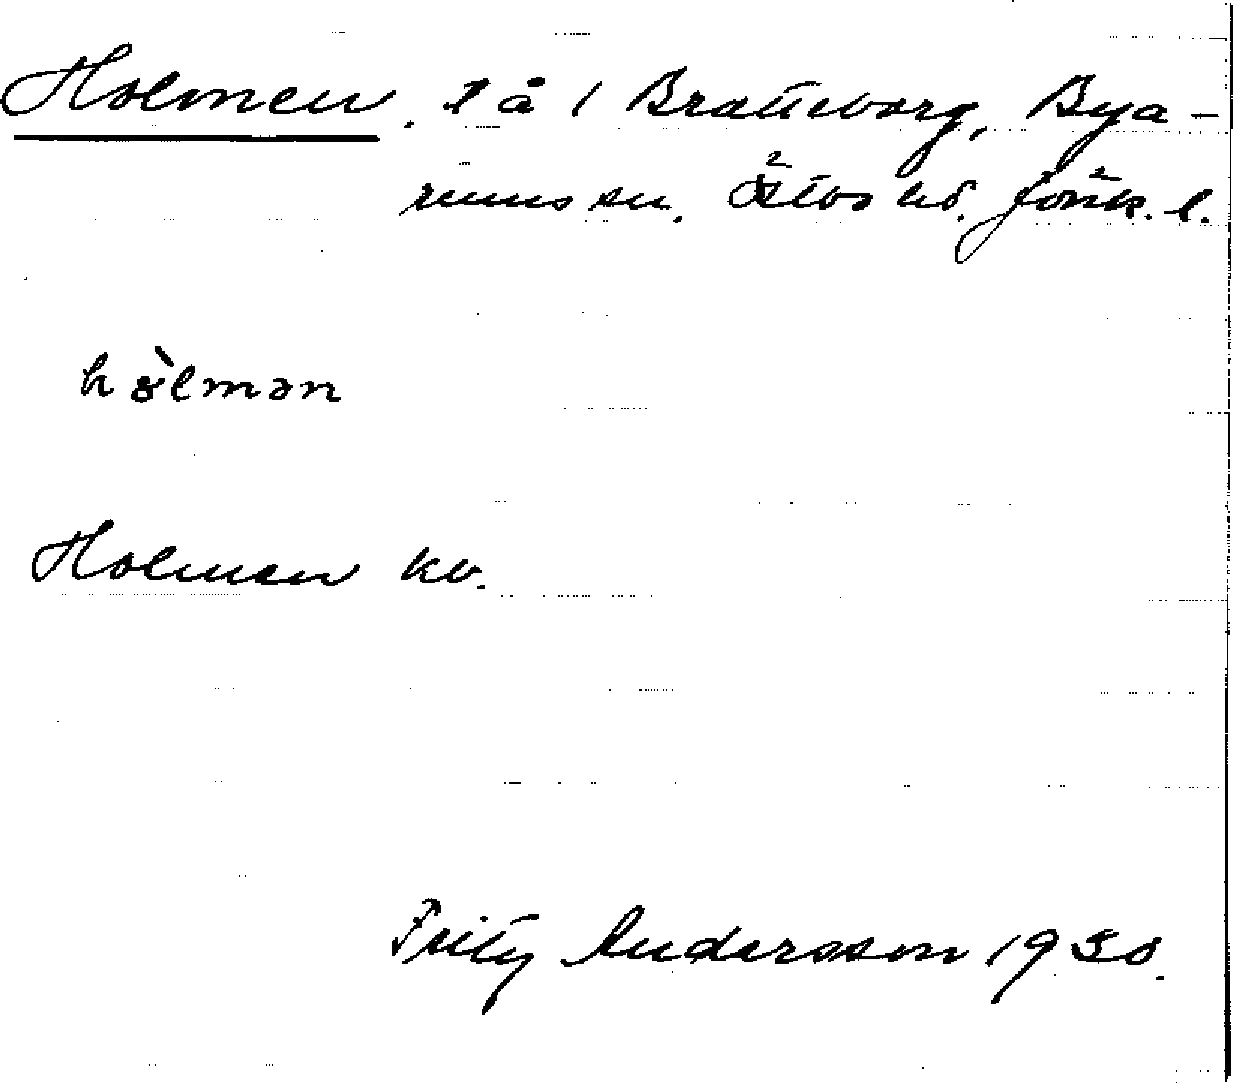 Holmen. l å i Bratteborg, Bya-
rums sn. Östbo hd. Jönk. l.
hòlmən
Holmen kv.
Fritz Andersson 1930.